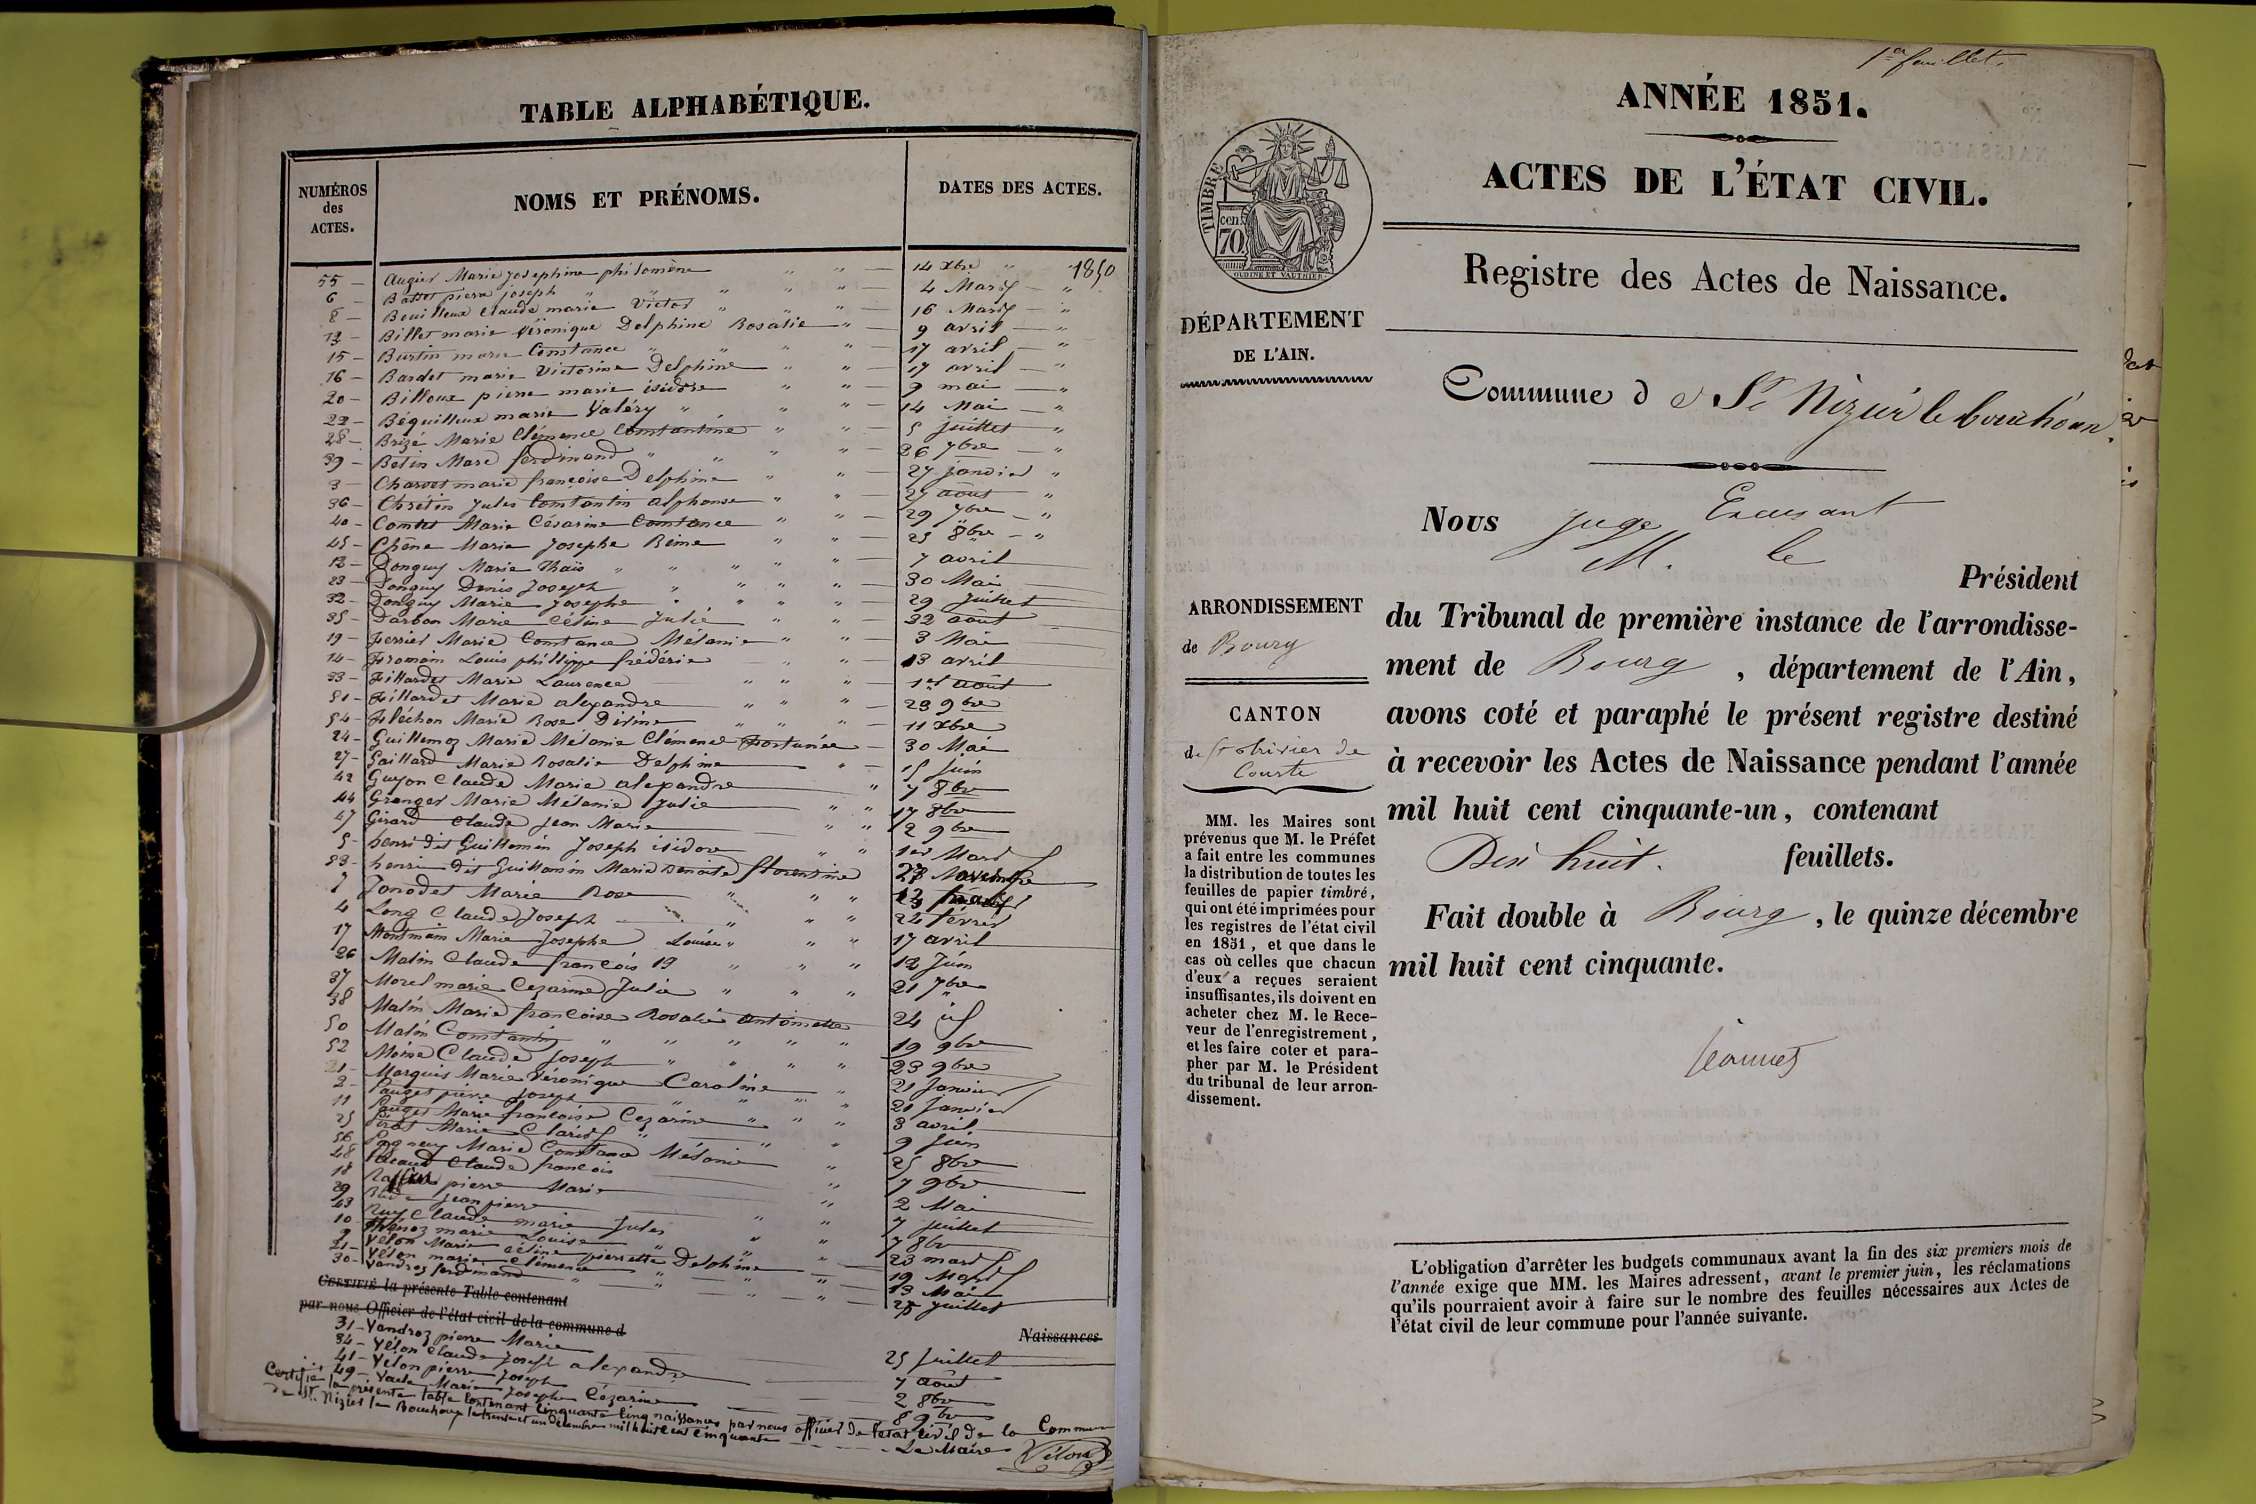 TABLE ALPHABÉTIQUE.
NUMÉROS des ACTES.
NOMS ET PRÉNOMS.
DATES DES ACTES.
55 — Augier Marie Josephine philomène " " — 14 Xbre " 1850
6 — Battet pierre joseph " " " " " — 4 Mars — "
8 — Bouilloux Claude marie Victor " " " — 16 Mars — "
13 — Billet marie Véronique Delphine Rosalie " — 9 avril — "
15 — Burtin marie Constance " " " " — 17 avril — "
16 — Bardet marie Victorine Delphine " " — 17 avril — "
20 — Billoux pierre marie isidore " " — 9 mai — "
22 — Béquilleux marie Valéry " " " — 14 Mai — "
28 — Brizé Marie Clémence Constantine " " — 5 juillet "
39 — Bétin Marc ferdinand " " " " — 26 7bre — "
3 — Charvet marie françoise Delphine " " — 27 janvier "
36 — Chrétin Jules Constantin alphonse " " — 27 août "
40 — Comtet Marie Césarine Constance " " — 29 7bre — "
45 — Chêne Marie Josephe Reine " " — 25 8bre — "
12 — Donguy Marie Thaïs " " " " " — 7 avril
23 — Donguy Denis Joseph " " " " — 30 Mai
32 — Donguy Marie Josephe " " " " — 29 Juillet
35 — Darbon Marie Céline Julie " " — 22 août
19 — Ferrier Marie Constance Mélanie " " — 3 Mai
14 — Fromain Louis philippe frédéric " " — 13 avril
33 — Fillardet Marie Laurence " " " — 1er août
51 — Fillardet Marie alexandre " " " — 23 9bre
54 — Fléchon Marie Rose Divine " " " — 11 Xbre
24 — Guillemoz Marie Mélanie Clémence fortunée — 30 Mai
27 — Gaillard Marie Rosalie Delphine " — 15 Juin
42 Guyon Claude Marie alexandre " 7 8bre
44 Granger Marie Mélanie Julie " " 17 8bre
47 Girard Claude Jean Marie " " 2 9bre
5 — henri dit Guillomin Joseph isidore " " 1er Mars
53 — henri dit Guillomin Marie Benoite florentine 27 Novembre
7 Jonodet Marie Rose " " " " 13 mars
4 Long Claude Joseph " " " 24 février
17 Montmain Marie Josephe Louise " " " 17 avril
26 Malin Claude françois 19 " " " 12 Juin
37 Morel marie Cezarine Julie " " " 21 7bre
38 Malin Marie françoise Rosalie antoinette 24 id
50 Malin Constantin " " " " " 19 9bre
52 Moine Claude Joseph " " " " 23 9bre
1 — Marquis Marie Véronique Caroline " 21 Janvier
2 — Pauget pierre Joseph " " " " 21 Janvier
11 Pauget Marie françoise Cezarine " " " 3 avril
25 Pirat Marie Clarisse " " " 9 Juin
46 Pugneuy Marie Constance Mélanie 25 8bre
48 Péraud Claude françois " 7 9bre
18 pierre Marie " 2 Mai
29 Jean pierre " 7 juillet
43 Ruy Claude marie Jules " " 7 8bre
10 marie Louise " " " 23 mars
9 Vélon Marie Céline pierrette Delphine " 19 Mars
21 — Vélon marie Clémence " " " 13 Mai
30 — Vandroz ferdinand " " " — 25 juillet
CERTIFIÉ la présente Table contenant Naissances
par nous Officier de l'état civil de la commune d
31 — Vandroz pierre Marie 25 Juillet
34 — Vélon Claude Joseph alexandre 7 août
41 — Vélon pierre Joseph 2 8bre
49 — Marie Josephe Cézarine 8 9bre
Certifié la présente table contenant Cinquante cinq naissances par nous officier de l'état civil de la Commune
de St. Nizier le Bouchoux le trente et un décembre mil huit cent cinquante
Le Maire
Vélon
1er feuillet.
ANNÉE 1851.
ACTES DE L'ÉTAT CIVIL.
Registre des Actes de Naissance.
TIMBRE
70 cen.
OUDINÉ ET VAUTHIER
DÉPARTEMENT
DE L'AIN.
Commune d e St Nizier le bouchoux.
ARRONDISSEMENT
de Bourg
CANTON
de St trivier de
Courte
MM. les Maires sont
prévenus que M. le Préfet
a fait entre les communes
la distribution de toutes les
feuilles de papier timbré,
qui ont été imprimées pour
les registres de l'état civil
en 1851, et que dans le
cas où celles que chacun
d'eux a reçues seraient
insuffisantes, ils doivent en
acheter chez M. le Rece-
veur de l'enregistrement,
et les faire coter et para-
pher par M. le Président
du tribunal de leur arron-
dissement.
Nous juge Excusant
M. le
Président
du Tribunal de première instance de l'arrondisse-
ment de Bourg, département de l'Ain,
avons coté et paraphé le présent registre destiné
à recevoir les Actes de Naissance pendant l'année
mil huit cent cinquante-un, contenant
Dix huit. feuillets.
Fait double à Bourg, le quinze décembre
mil huit cent cinquante.
Jeannet
L'obligation d'arrêter les budgets communaux avant la fin des six premiers mois de
l'année exige que MM. les Maires adressent, avant le premier juin, les réclamations
qu'ils pourraient avoir à faire sur le nombre des feuilles nécessaires aux Actes de
l'état civil de leur commune pour l'année suivante.